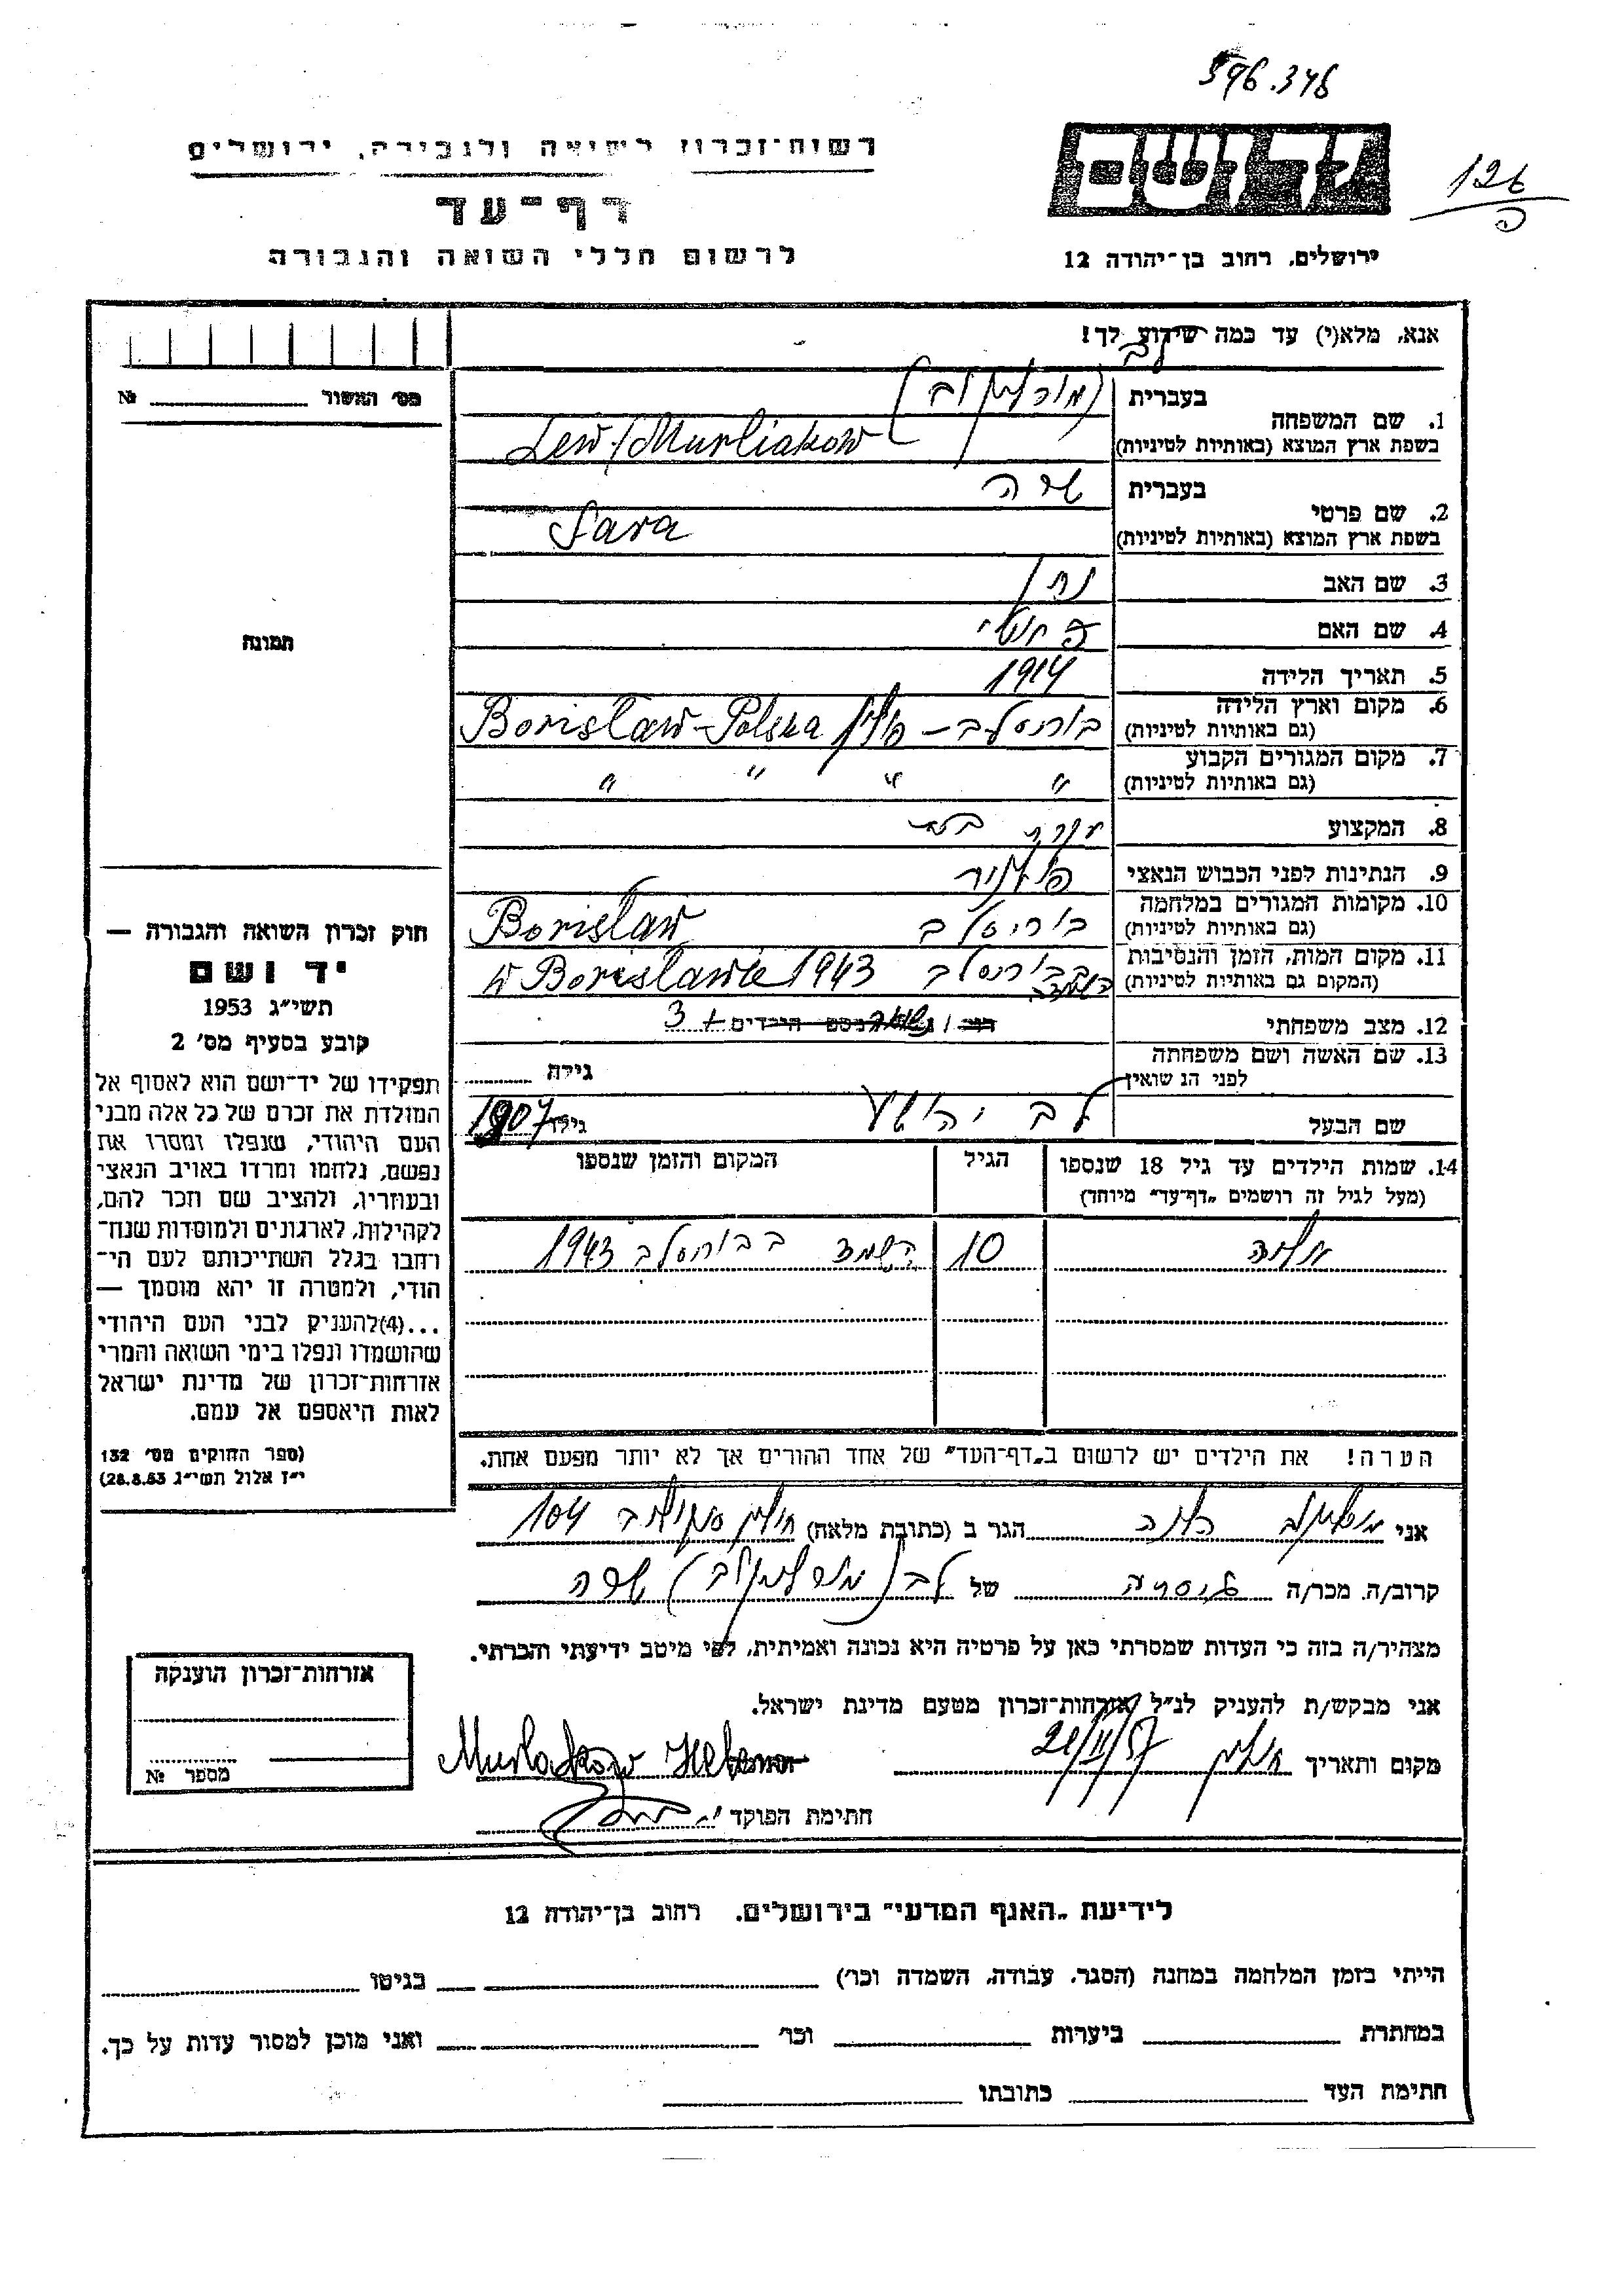 596.348
126
רשות-זכרון לשואה ולגבורה, ירושלים
דף-עד
לרשום חללי השואה והגבורה
יד ושם
ירושלים, רחוב בן-יהודה 12
אנא, מלא(י) עד כמה שידוע לך!
מס' האשור №
1. שם המשפחה
בעברית לב
בשפת ארץ המוצא (באותיות לטיניות) Lew/Murliakow
2. שם פרטי
בעברית שרה
בשפת ארץ המוצא (באותיות לטיניות) Sara
3. שם האב נתן
4. שם האם
5. תאריך הלידה 1914
6. מקום וארץ הלידה בוריסלב – פולין Borisław-Polska
(גם באותיות לטיניות)
7. מקום המגורים הקבוע " " " "
(גם באותיות לטיניות)
8. המקצוע עקרת בית
9. הנתינות לפני הכבוש הנאצי
10. מקומות המגורים במלחמה בוריסלב Borisław
(גם באותיות לטיניות)
11. מקום המות, הזמן והנסיבות בבוריסלב 1943 w Borisławie
(המקום גם באותיות לטיניות)
12. מצב משפחתי 3
13. שם האשה ושם משפחתה
לפני הנשואין
גילה
שם הבעל לב יהושע גילו 1907
14. שמות הילדים עד גיל 18 שנספו
(מעל לגיל זה רושמים "דף-עד" מיוחד)
הגיל
המקום והזמן שנספו
10 בבוריסלב 1943
הערה! את הילדים יש לרשום ב"דף-העד" של אחד ההורים אך לא יותר מפעם אחת.
תמונה
חוק זכרון השואה והגבורה —
יד ושם
תשי"ג 1953
קובע בסעיף מס' 2
תפקידו של יד-ושם הוא לאסוף אל
המולדת את זכרם של כל אלה מבני
העם היהודי, שנפלו ומסרו את
נפשם, נלחמו ומרדו באויב הנאצי
ובעוזריו, ולהציב שם וזכר להם,
לקהילות, לארגונים ולמוסדות שנח-
רחבו בגלל השתייכותם לעם הי-
הודי, ולמטרה זו יהא מוסמך —
...(4)להעניק לבני העם היהודי
שהושמדו ונפלו בימי השואה והמרי
אזרחות-זכרון של מדינת ישראל
לאות היאספם אל עמם.
(ספר החוקים מס' 132
י"ז אלול תשי"ג 28.8.53)
אני הגר ב (כתובת מלאה) חולון 104
קרוב/ה, מכר/ה גיסתה של לב שרה
מצהיר/ה בזה כי העדות שמסרתי כאן על פרטיה היא נכונה ואמיתית, לפי מיטב ידיעתי והכרתי.
אני מבקש/ת להעניק לנ"ל אזרחות-זכרון מטעם מדינת ישראל.
מקום ותאריך חולון
חתימת הפוקד
אזרחות-זכרון הוענקה
מספר №
לידיעת "האגף המדעי" בירושלים. רחוב בן-יהודה 12
הייתי בזמן המלחמה במחנה (הסגר, עבודה, השמדה וכר') בגיטו
במחתרת ביערות וכר' ואני מוכן למסור עדות על כך.
חתימת העד כתובתו